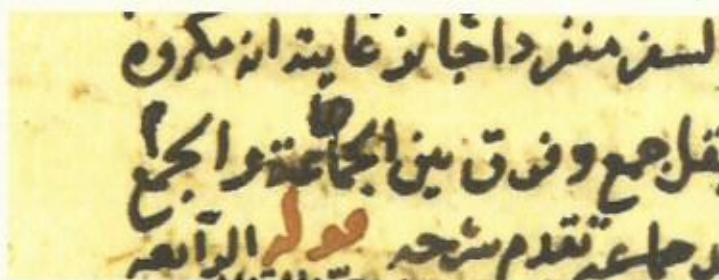 لسفر منفردا جائز غايته انه مكروه
يقل جمع وفرق بين الجماعة والجمع
تقدم شرحه قوله الرابعه